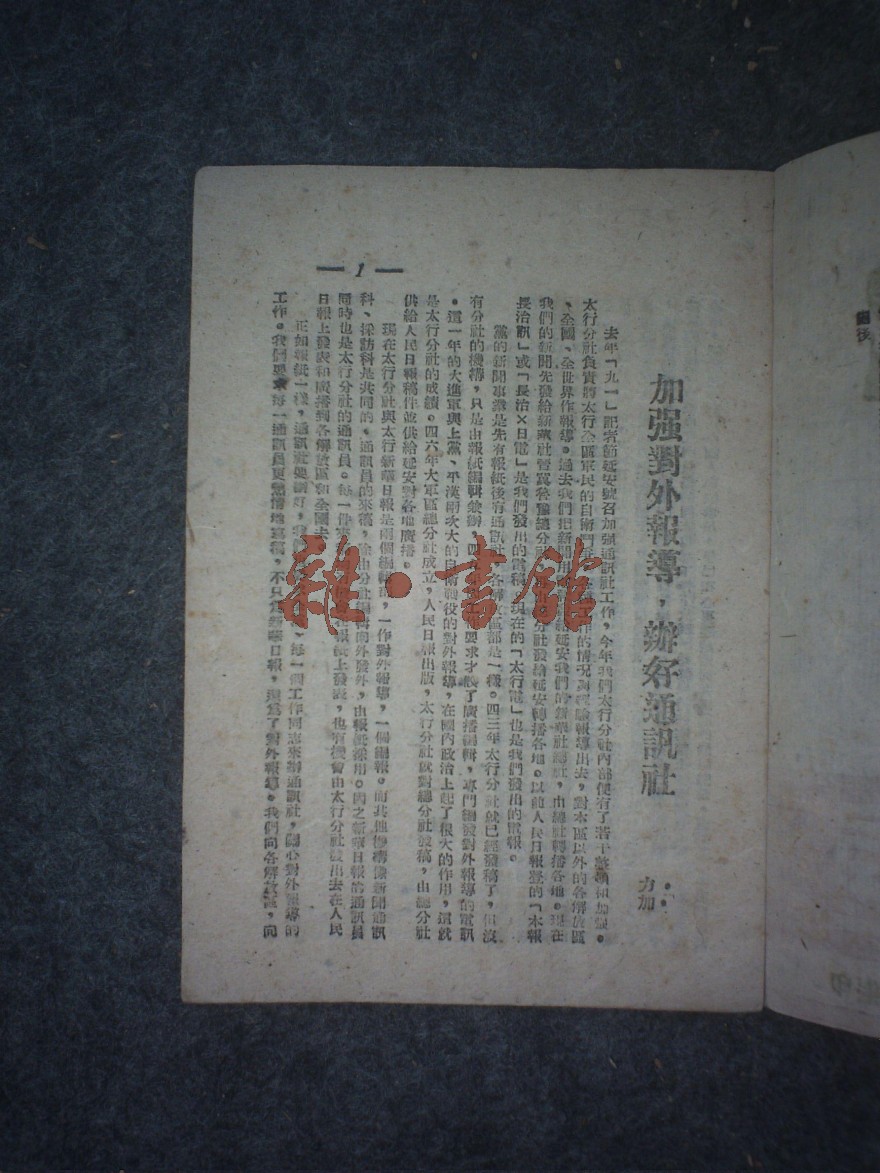 加强對外報導，辦好通訊社
力加
去年「九一」記者節延安號召加强通訊社工作，今年我們太行分社內部便有了若干整頓和加强。
太行分社負責將太行全區軍民的自衛鬥爭 工作的情況與經驗報導出去，對本區以外的各解放區
、全國、全世界作報導。過去我們把新聞用 給延安我們的新華社總社，由總社轉播各地。現在
我們的新聞先發給新華社晋冀魯豫總分社 分社發給延安轉播各地。以前人民日報登的「本報
長治訊」或「長治×日電」是我們發出的電稿，現在的「太行電」也是我們發出的電報。
黨的新聞事業是先有報紙後有通訊社，各解放區都是一樣。四三年太行分社就已經發稿了，但沒
有分社的機構，只是由報紙編輯兼辦，四 要求才設了廣播編輯，專門編發對外報導的電訊
。這一年的大進軍與上黨、平漢兩次大的自衛戰役的對外報導，在國內政治上起了很大的作用，這就
是太行分社的成績。四六年大軍區總分社成立，人民日報出版，太行分社就對總分社發稿，由總分社
供給人民日報稿件並供給延安對各地廣播。
現在太行分社與太行新華日報是兩個編輯部，一作對外報導，一個編報。而其他機構像新聞通訊
科、採訪科是共同的。通訊員的來稿，除由分社編輯向外發外，由報紙採用。因之新華日報的通訊員
同時也是太行分社的通訊員。每一件 在報紙上發表，也有機會由太行分社發出去在人民
日報上發表和廣播到各解放區和全國去
正如報紙一樣，通訊社要辦好， 每一個工作同志來辦通訊社，關心對外報導的
工作。我們要求每一通訊員更熱情地寫稿，不只為新華日報，還為了對外報導。我們向各解放區，向
— 1 —
雜·書館